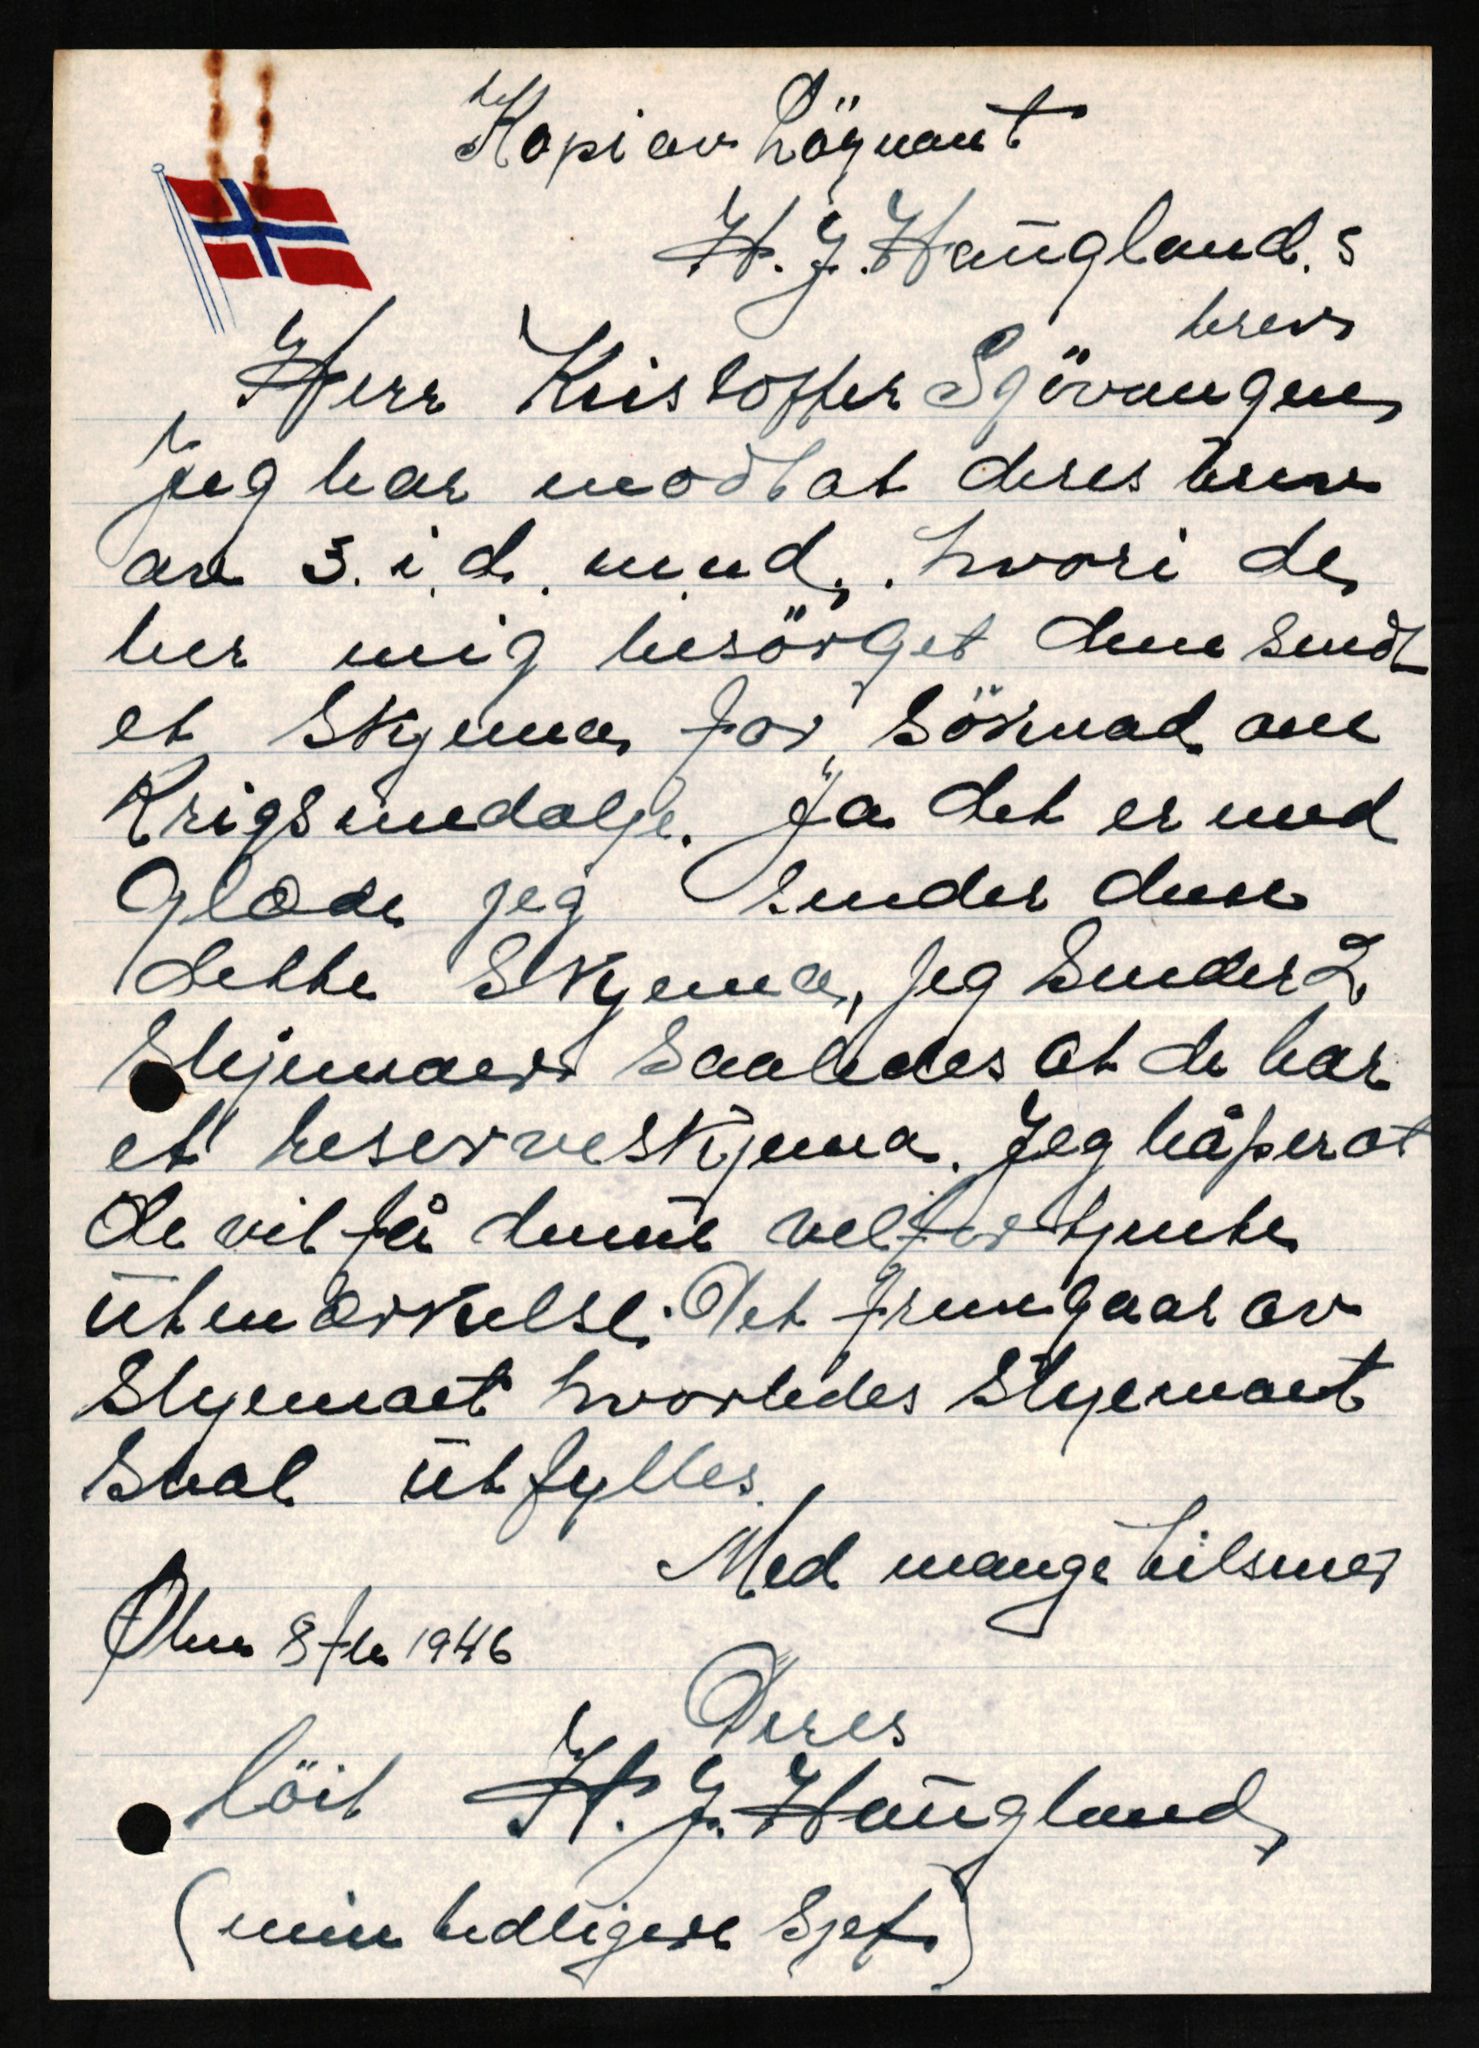 Kopi av Löynant
H. J. Haugland.s
brev
Herr Kristoffer Sjövangen
Jeg har modtat deres brev
av 3. i. d. mnd,. hvori de
ber mig besörget dem sendt
et Skjema for Söknad om
Krigsmedalje. Ja det er med
Glæde jeg sender dem
dette Skjema, jeg sender 2
Skjemaer Saaledes at de har
et reserveskjema. Jeg håper at
de vil få denne velfortjente
Utmærkelse. Det fremgaar av
Skjemaet hvorledes Skjemaet
Skal utfylles.
Med mange hilsner
8 feb 1946
Deres
Löit H. J. Haugland
(min tidligere Sjef.)